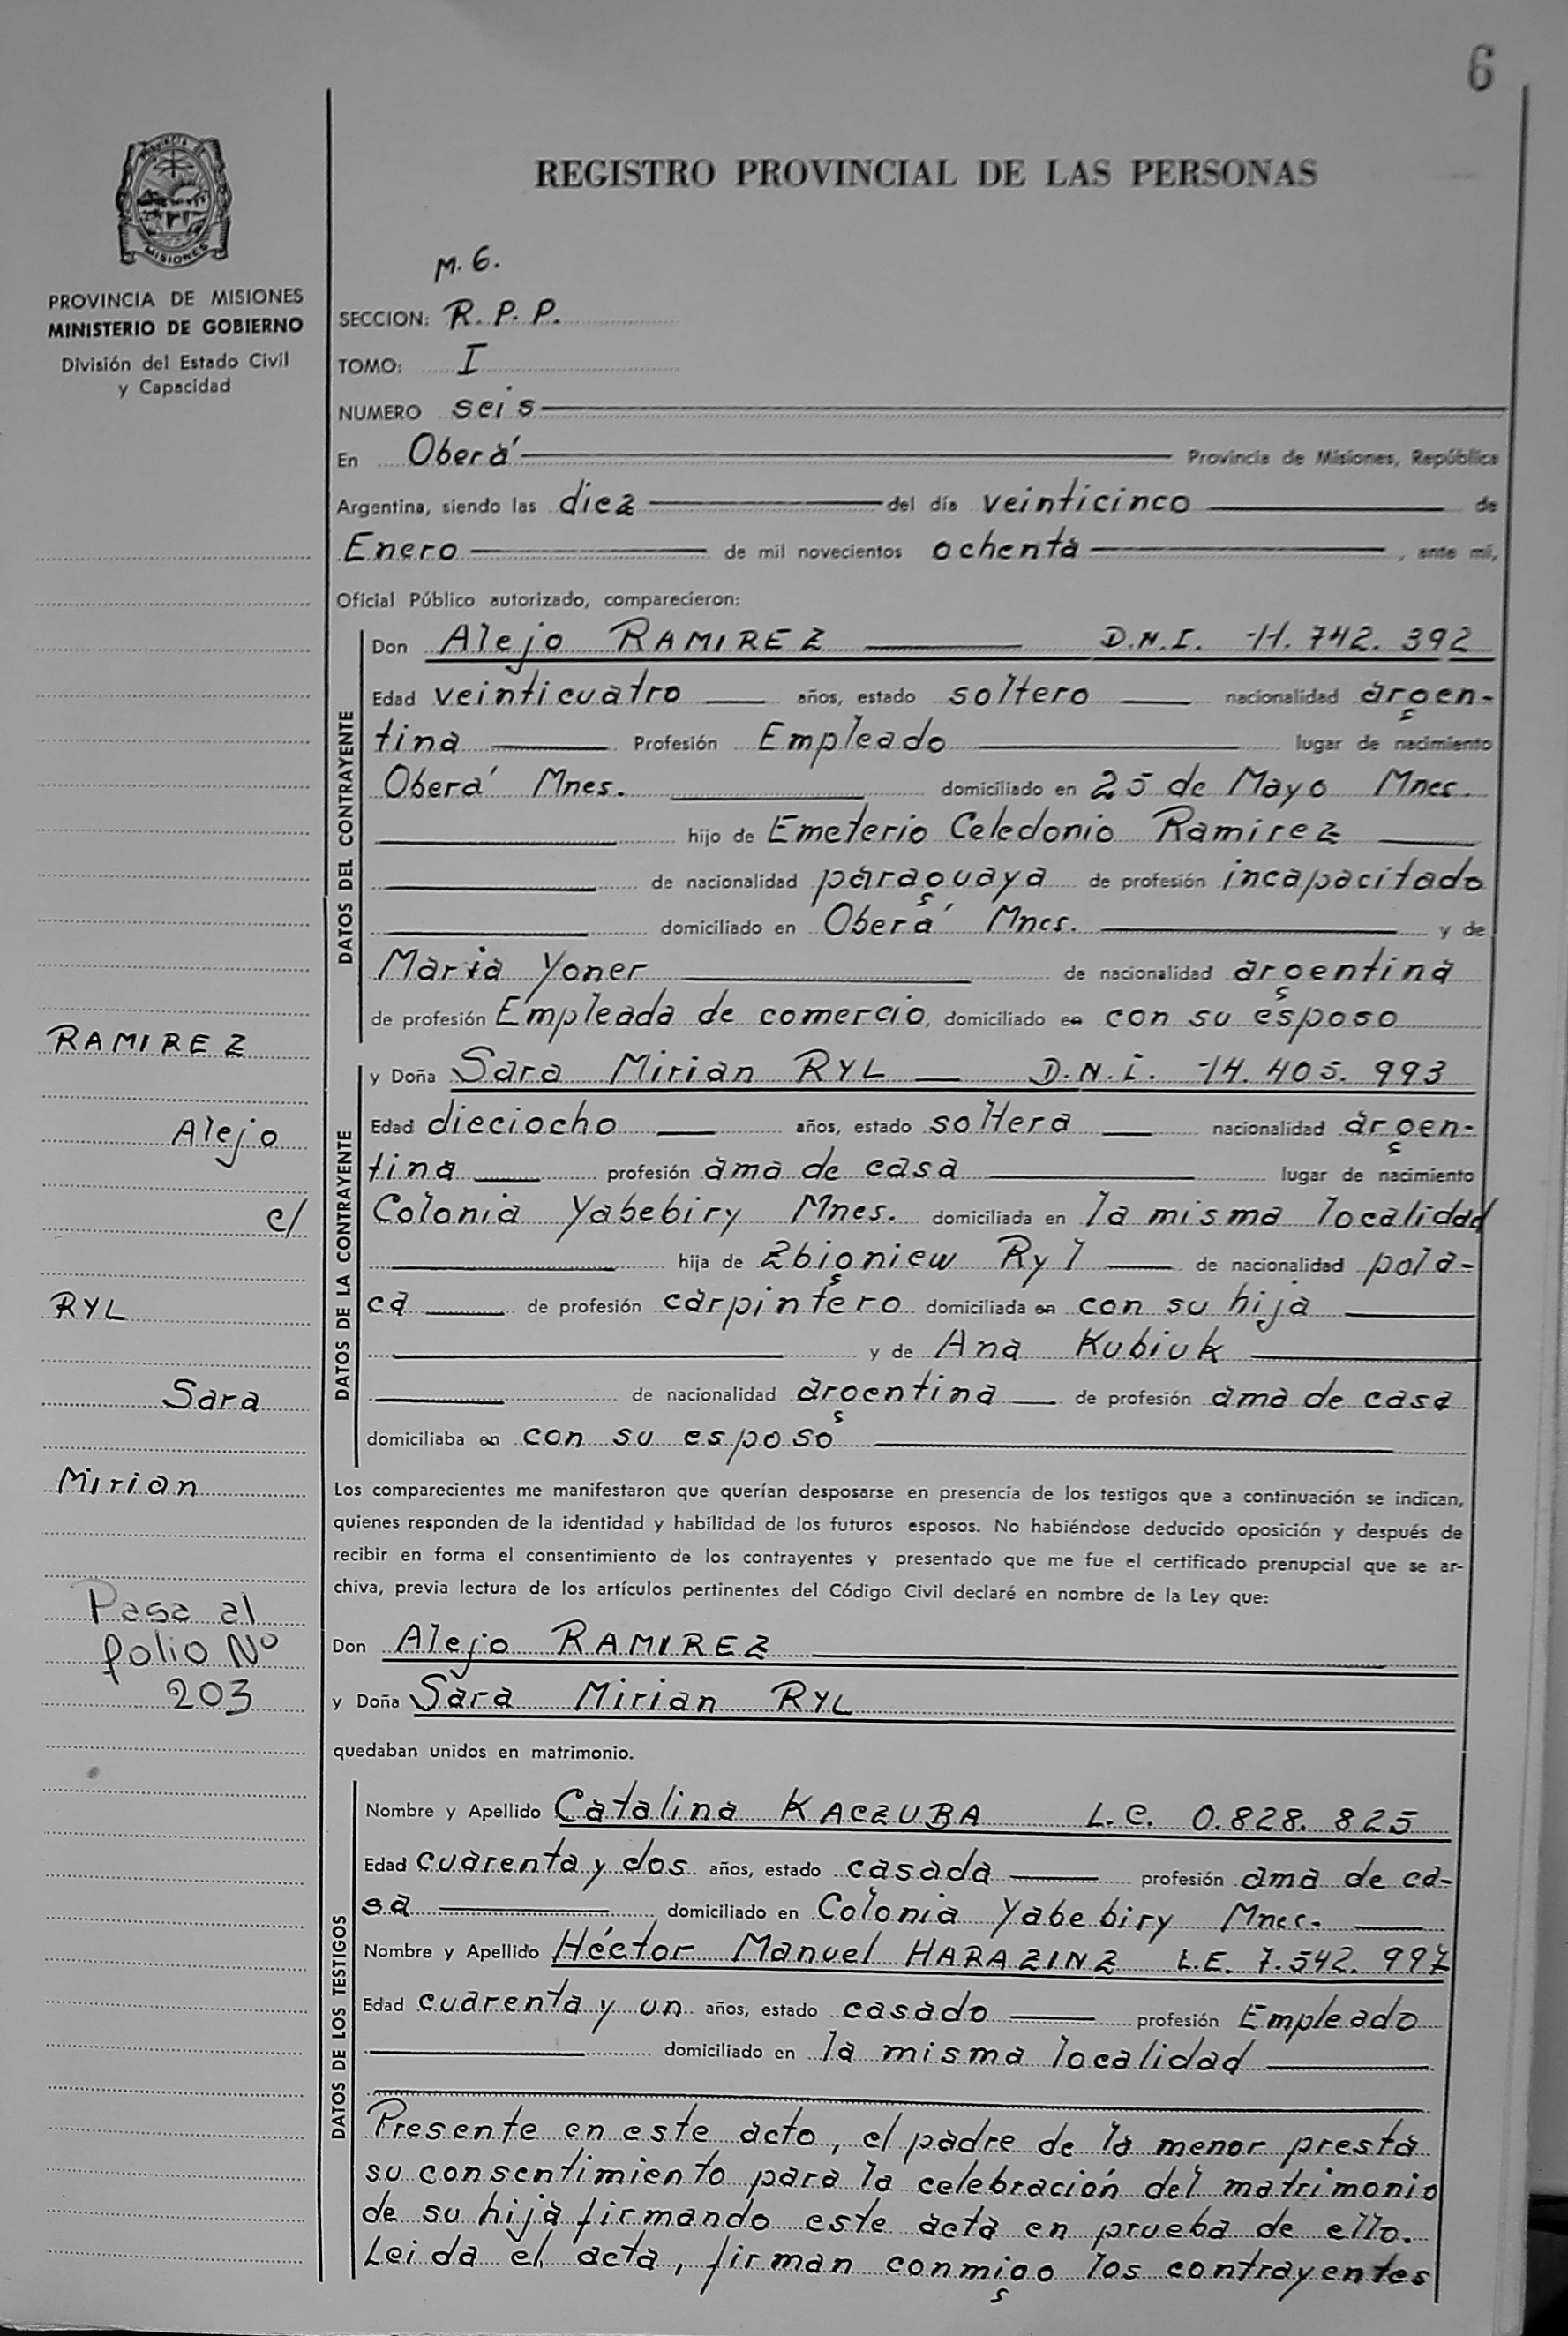 6
REGISTRO PROVINCIAL DE LAS PERSONAS
PROVINCIA DE
MISIONES
PROVINCIA DE MISIONES
MINISTERIO DE GOBIERNO
División del Estado Civil
y Capacidad
M. G.
SECCION: R. P. P.
TOMO: I
NUMERO seis
En Oberá Provincia de Misiones, República
Argentina, siendo las diez del día veinticinco de
Enero de mil novecientos ochenta, ante mí,
Oficial Público autorizado, comparecieron:
DATOS DEL CONTRAYENTE
Don Alejo RAMIREZ D.N.I. 11.742.392
Edad veinticuatro años, estado soltero nacionalidad argen-
tina Profesión Empleado lugar de nacimiento
Oberá Mnes. domiciliado en 25 de Mayo Mnes.
hijo de Emeterio Celedonio Ramirez
de nacionalidad paraguaya de profesión incapacitado
domiciliado en Oberá Mnes. y de
Maria Yoner de nacionalidad argentina
de profesión Empleada de comercio, domiciliado en con su esposo
DATOS DE LA CONTRAYENTE
y Doña Sara Mirian RYL D.N.i. 14.405.993
Edad dieciocho años, estado soltera nacionalidad argen-
tina profesión ama de casa lugar de nacimiento
Colonia Yabebiry Mnes. domiciliada en la misma localidad
hija de Zbigniew Ryl de nacionalidad pola-
ca de profesión carpintero domiciliada en con su hija
y de Ana Kubiuk
de nacionalidad argentina de profesión ama de casa
domiciliaba en con su esposo
RAMIREZ
Alejo
c/
RYL
Sara
Mirian
Pasa al
folio Nº
203
Los comparecientes me manifestaron que querían desposarse en presencia de los testigos que a continuación se indican,
quienes responden de la identidad y habilidad de los futuros esposos. No habiéndose deducido oposición y después de
recibir en forma el consentimiento de los contrayentes y presentado que me fue el certificado prenupcial que se ar-
chiva, previa lectura de los artículos pertinentes del Código Civil declaré en nombre de la Ley que:
Don Alejo RAMIREZ
y Doña Sara Mirian RYL
quedaban unidos en matrimonio.
DATOS DE LOS TESTIGOS
Nombre y Apellido Catalina KACZUBA L.C. 0.828.825
Edad cuarenta y dos años, estado casada profesión ama de ca-
sa domiciliado en Colonia Yabebiry Mnes.
Nombre y Apellido Héctor Manuel HARAZINZ L.E. 7.542.997
Edad cuarenta y un años, estado casado profesión Empleado
domiciliado en la misma localidad
Presente en este acto, el padre de la menor presta
su consentimiento para la celebración del matrimonio
de su hija firmando este acta en prueba de ello.
Leida el acta, firman conmigo los contrayentes